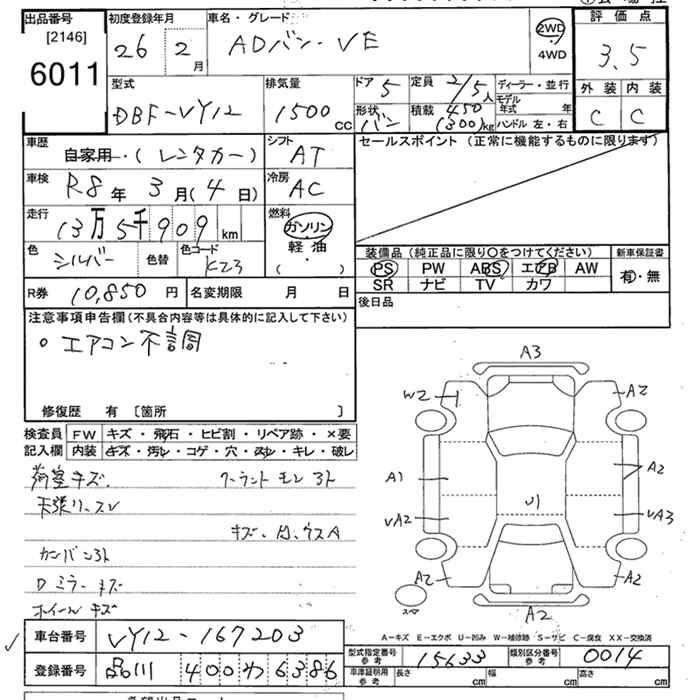 出品番号
[2146]
6011
初度登録年月
26 2月
車名・グレード
ADバン・VE
2WD
4WD
評価点
3.5
外装 内装
C C
型式
DBF-VY12
排気量
1500CC
ドア 5
定員 2/5人
形状 バン
積載 450(300)kg
ディーラー・並行
モデル年式 年
ハンドル 左・右
車歴
自家用・(レンタカー)
シフト
AT
セールスポイント (正常に機能するものに限ります)
車検
R8年3月(4日)
冷房
AC
走行
13万5千909km
燃料
ガソリン
軽油
( ・ )
色
シルバー
色替
色コード
K23
装備品(純正品に限り○をつけてください)
PS PW ABS エアB AW
SR ナビ TV カワ
新車保証書
有・無
R券 10,850円
名変期限 月 日
後日品
注意事項申告欄(不具合内容等は具体的に記入して下さい)
○ エアコン不調
修復歴 有〔箇所 〕
検査員記入欄
FW キズ・飛石・ヒビ割・リペア跡・×要
内装 キズ・汚レ・コゲ・穴・スレ・キレ・破レ
荷室キズ.
クーラントモレ
天張り
キズ・
カンバン
Dミラーキズ
ホイールキズ
A3
W2
A2
A1
A2
U1
UA2
UA3
A2
A2
スペア
A2
A-キズ E-エクボ U-凹み W-補修跡 S-サビ C-腐食 XX-交換済
車台番号
VY12-167203
登録番号
品川 400 わ 6386
型式指定番号
参考
15633
類別区分番号
参考
0014
車庫証明用
参考
長さ cm 幅 cm 高さ cm